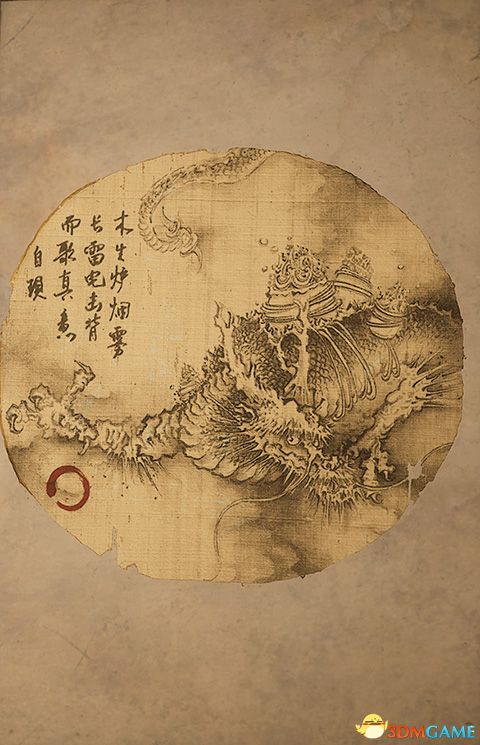 木生炉烟雾
长雷电击背
而歌真意
自現
3DMGAME